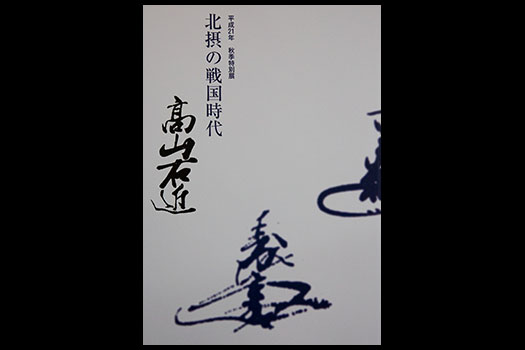 平成21年 秋季特別展
北摂の戦国時代
高山右近